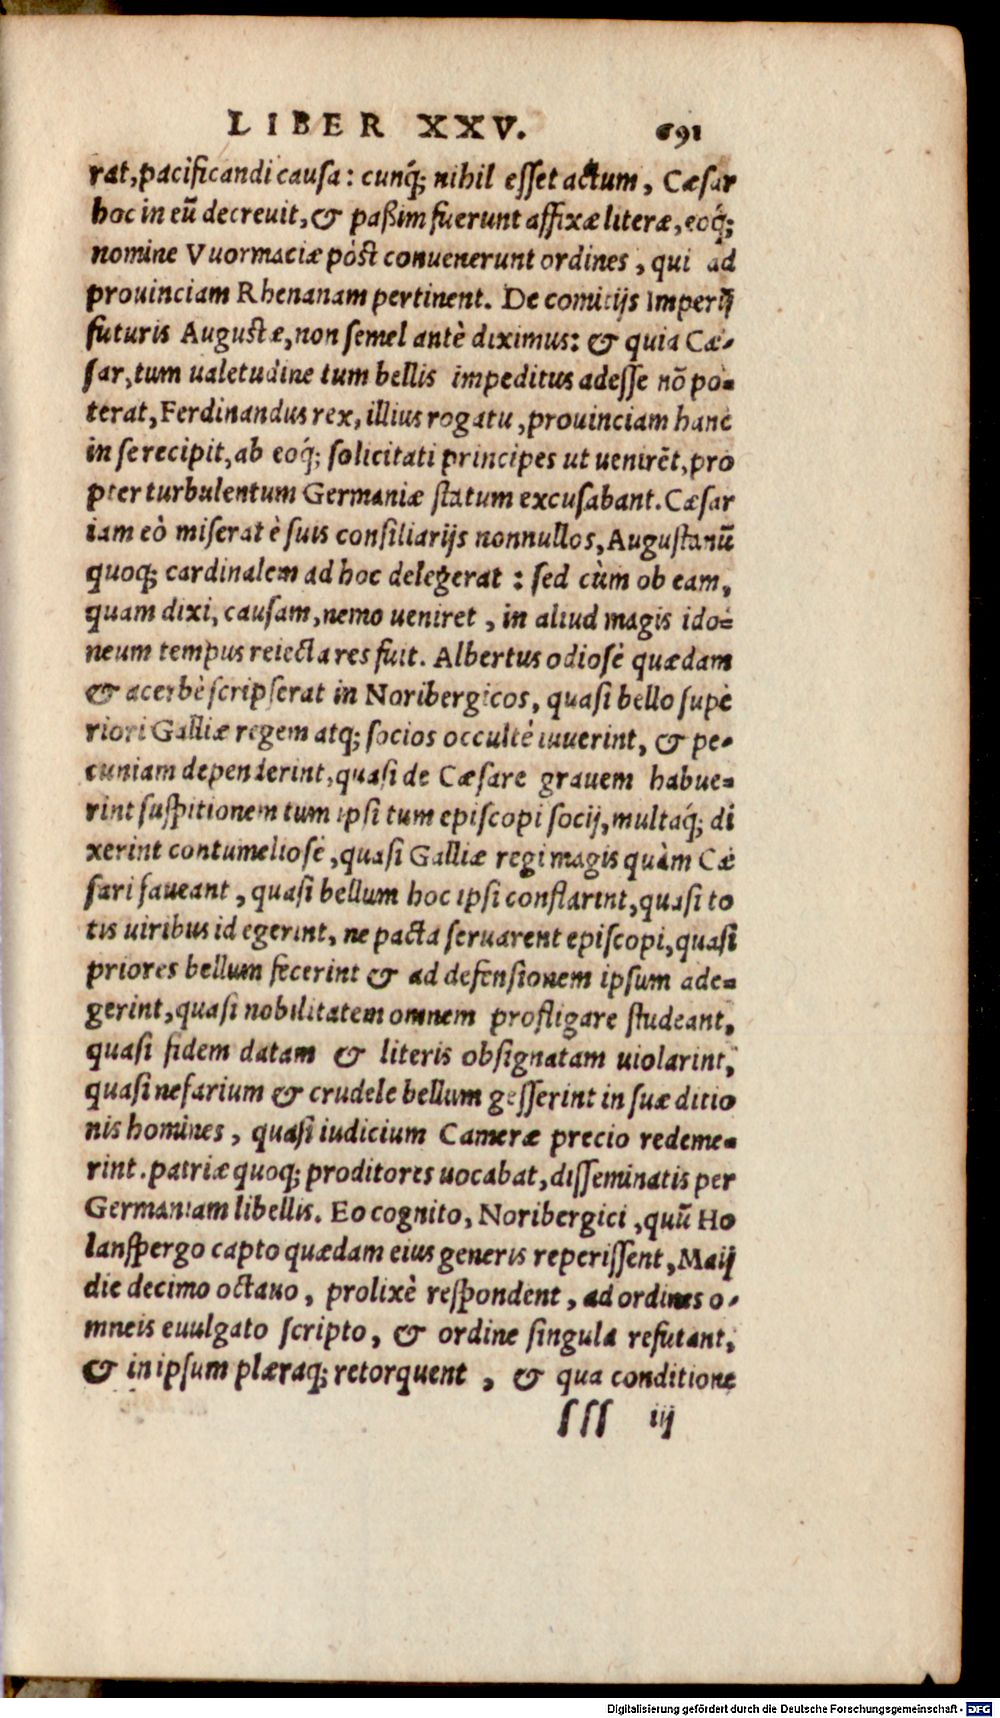 LIBER XXV. 691
rat, pacificandi causa: cunq́; nihil esset actum, Cæsar
hoc in eũ decreuit, & paßim fuerunt affixæ literæ, eoq́;
nomine Vuormaciæ pòst conuenerunt ordines, qui ad
prouinciam Rhenanam pertinent. De comitijs Imperij
futuris Augustæ, non semel antè diximus: & quia Cæ-
sar, tum ualetudine tum bellis impeditus adesse nõ po-
terat, Ferdinandus rex, illius rogatu, prouinciam hanc
in se recipit, ab eoq́; solicitati principes ut uenirẽt, pro
pter turbulentum Germaniæ statum excusabant. Cæsar
iam eò miserat è suis consiliarijs nonnullos, Augustanũ
quoq; cardinalem ad hoc delegerat: sed cùm ob eam,
quam dixi, causam, nemo ueniret, in aliud magis ido-
neum tempus reiecta res fuit. Albertus odiosè quædam
& acerbè scripserat in Noribergicos, quasi bello supe
riori Galliæ regem atq; socios occultè iuuerint, & pe-
cuniam dependerint, quasi de Cæsare grauem habue-
rint suspitionem tum ipsi tum episcopi socij, multaq́; di
xerint contumeliosè, quasi Galliæ regi magis quàm Cæ
sari faueant, quasi bellum hoc ipsi conflarint, quasi to
tis uiribus id egerint, ne pacta seruarent episcopi, quasi
priores bellum fecerint & ad defensionem ipsum ade-
gerint, quasi nobilitatem omnem profligare studeant,
quasi fidem datam & literis obsignatam uiolarint,
quasi nefarium & crudele bellum gesserint in suæ ditio
nis homines, quasi iudicium Cameræ precio redeme-
rint. patriæ quoq; proditores uocabat, disseminatis per
Germaniam libellis. Eo cognito, Noribergici, quũ Ho
lanspergo capto quædam eius generis reperissent, Maij
die decimo octauo, prolixè respondent, ad ordines o-
mneis euulgato scripto, & ordine singula refutant,
& in ipsum plæraq; retorquent, & qua conditione
sss iij
Digitalisierung gefördert durch die Deutsche Forschungsgemeinschaft - DFG